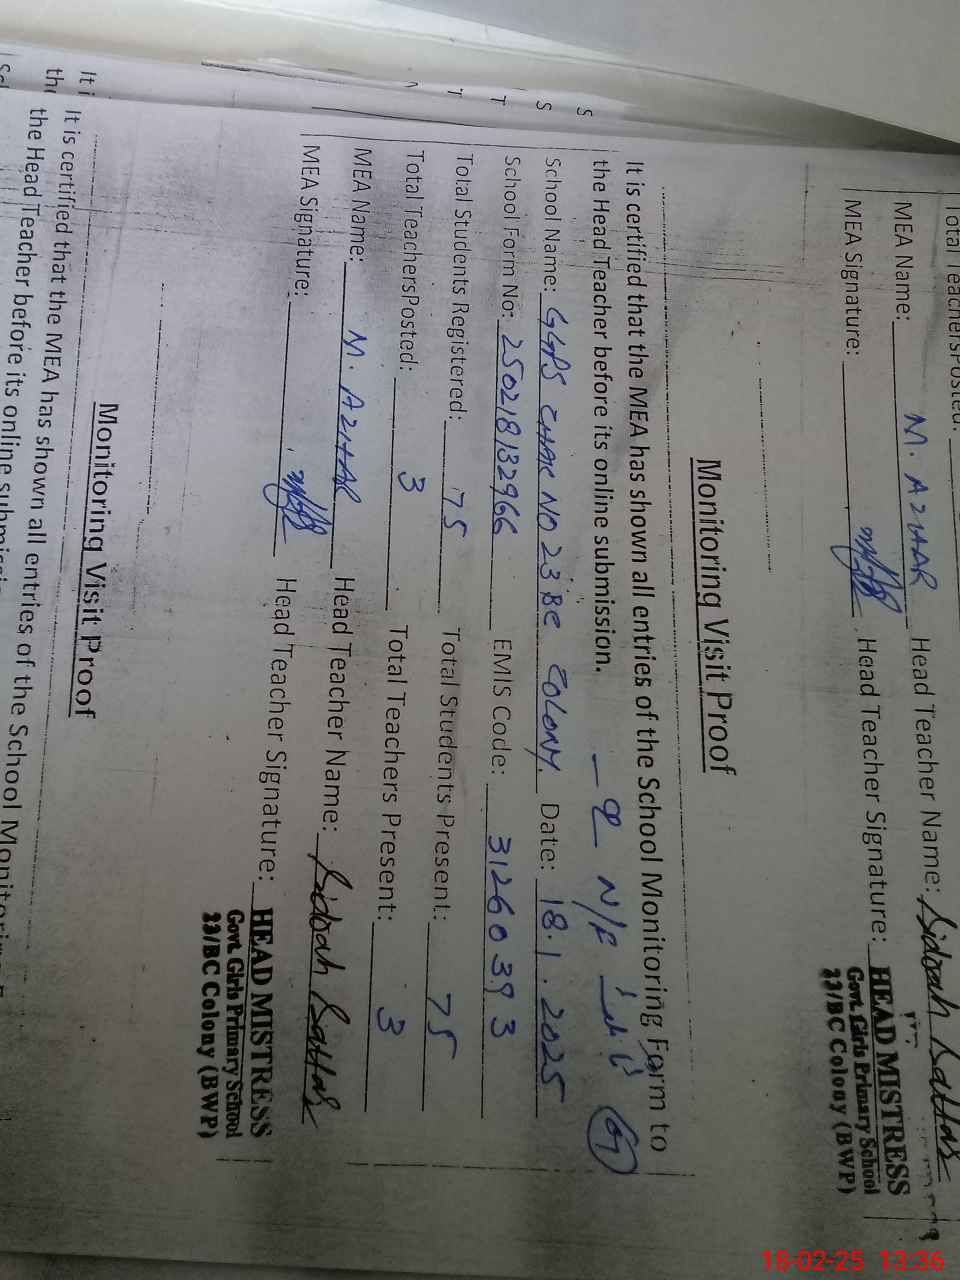 Total TeachersPosted:
MEA Name: M. AZHAR Head Teacher Name: Sidoah Sattar
MEA Signature: Head Teacher Signature: HEAD MISTRESS
Govt. Girls Primary School
23/BC Colony (BWP)
Monitoring Visit Proof
It is certified that the MEA has shown all entries of the School Monitoring Form to
the Head Teacher before its online submission. N/F 67
School Name: GGPS CHAK NO 23 BC COLONY. Date: 18.1.2025
School Form No: 250218132966 EMIS Code: 31260393
Total Students Registered: 75 Total Students Present: 75
Total TeachersPosted: 3 Total Teachers Present: 3
MEA Name: M. AZHAR Head Teacher Name: Sidoah Sattar
MEA Signature: Head Teacher Signature: HEAD MISTRESS
Govt. Girls Primary School
23/BC Colony (BWP)
Monitoring Visit Proof
It is certified that the MEA has shown all entries of the School Monitoring
the Head Teacher before its online
It
S
S
T
T
18-02-25 13:36